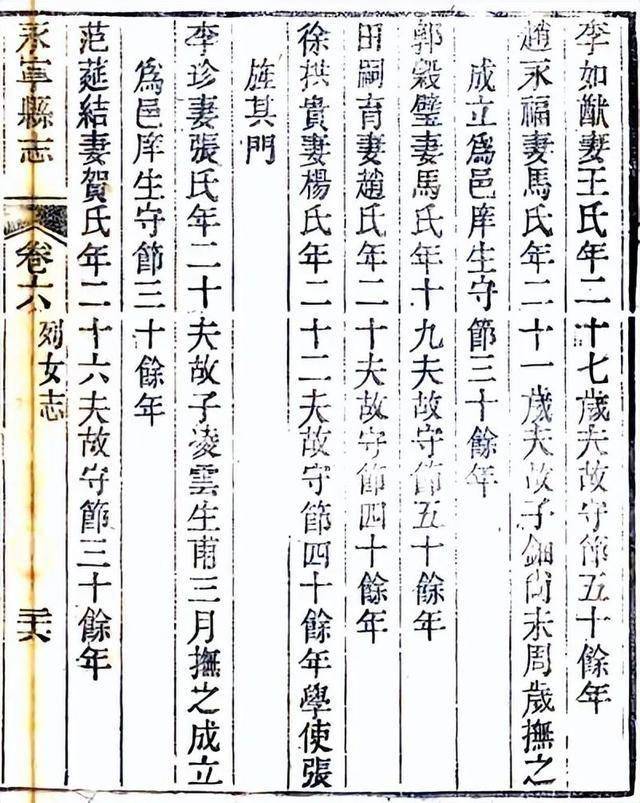 李如猷妻王氏年二十七歲夫故守節五十餘年
趙永福妻馬氏年二十一歲夫故子鈿尚未周歲撫之
成立為邑庠生守節三十餘年
郭毅璧妻馬氏年十九夫故守節五十餘年
田嗣育妻趙氏年二十夫故守節四十餘年
徐拱貴妻楊氏年二十二夫故守節四十餘年學使張
旌其門
李珍妻張氏年二十夫故子凌雲生甫三月撫之成立
為邑庠生守節三十餘年
范莚結妻賀氏年二十六夫故守節三十餘年
永寧縣志
卷六
列女志
三六